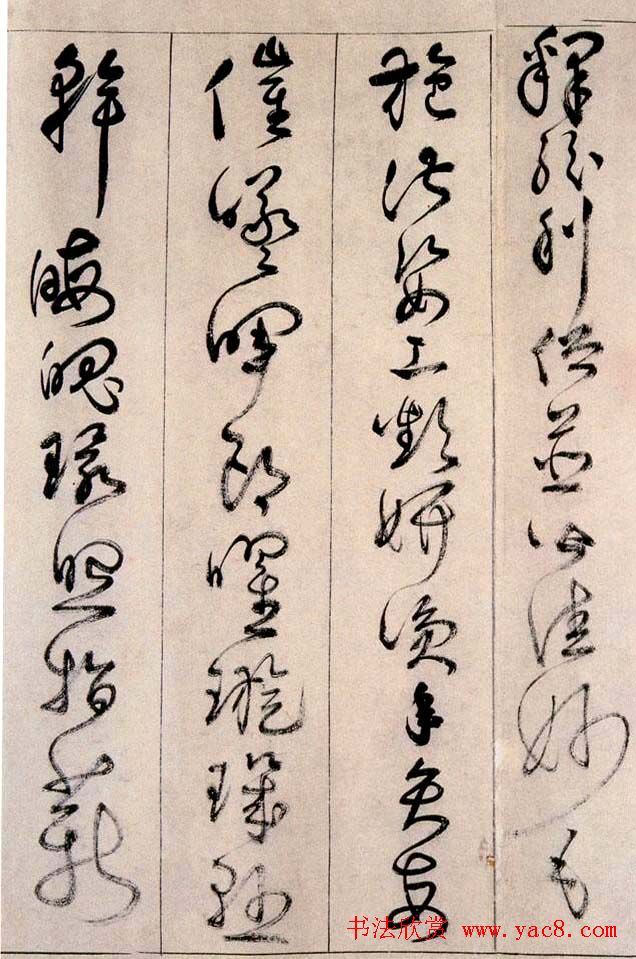 釋紛利俗並皆佳妙毛
施淑姿工顰妍笑年矢每
催曦暉朗曜璇璣懸
斡晦魄環照指薪
书法欣赏 www.yac8.com